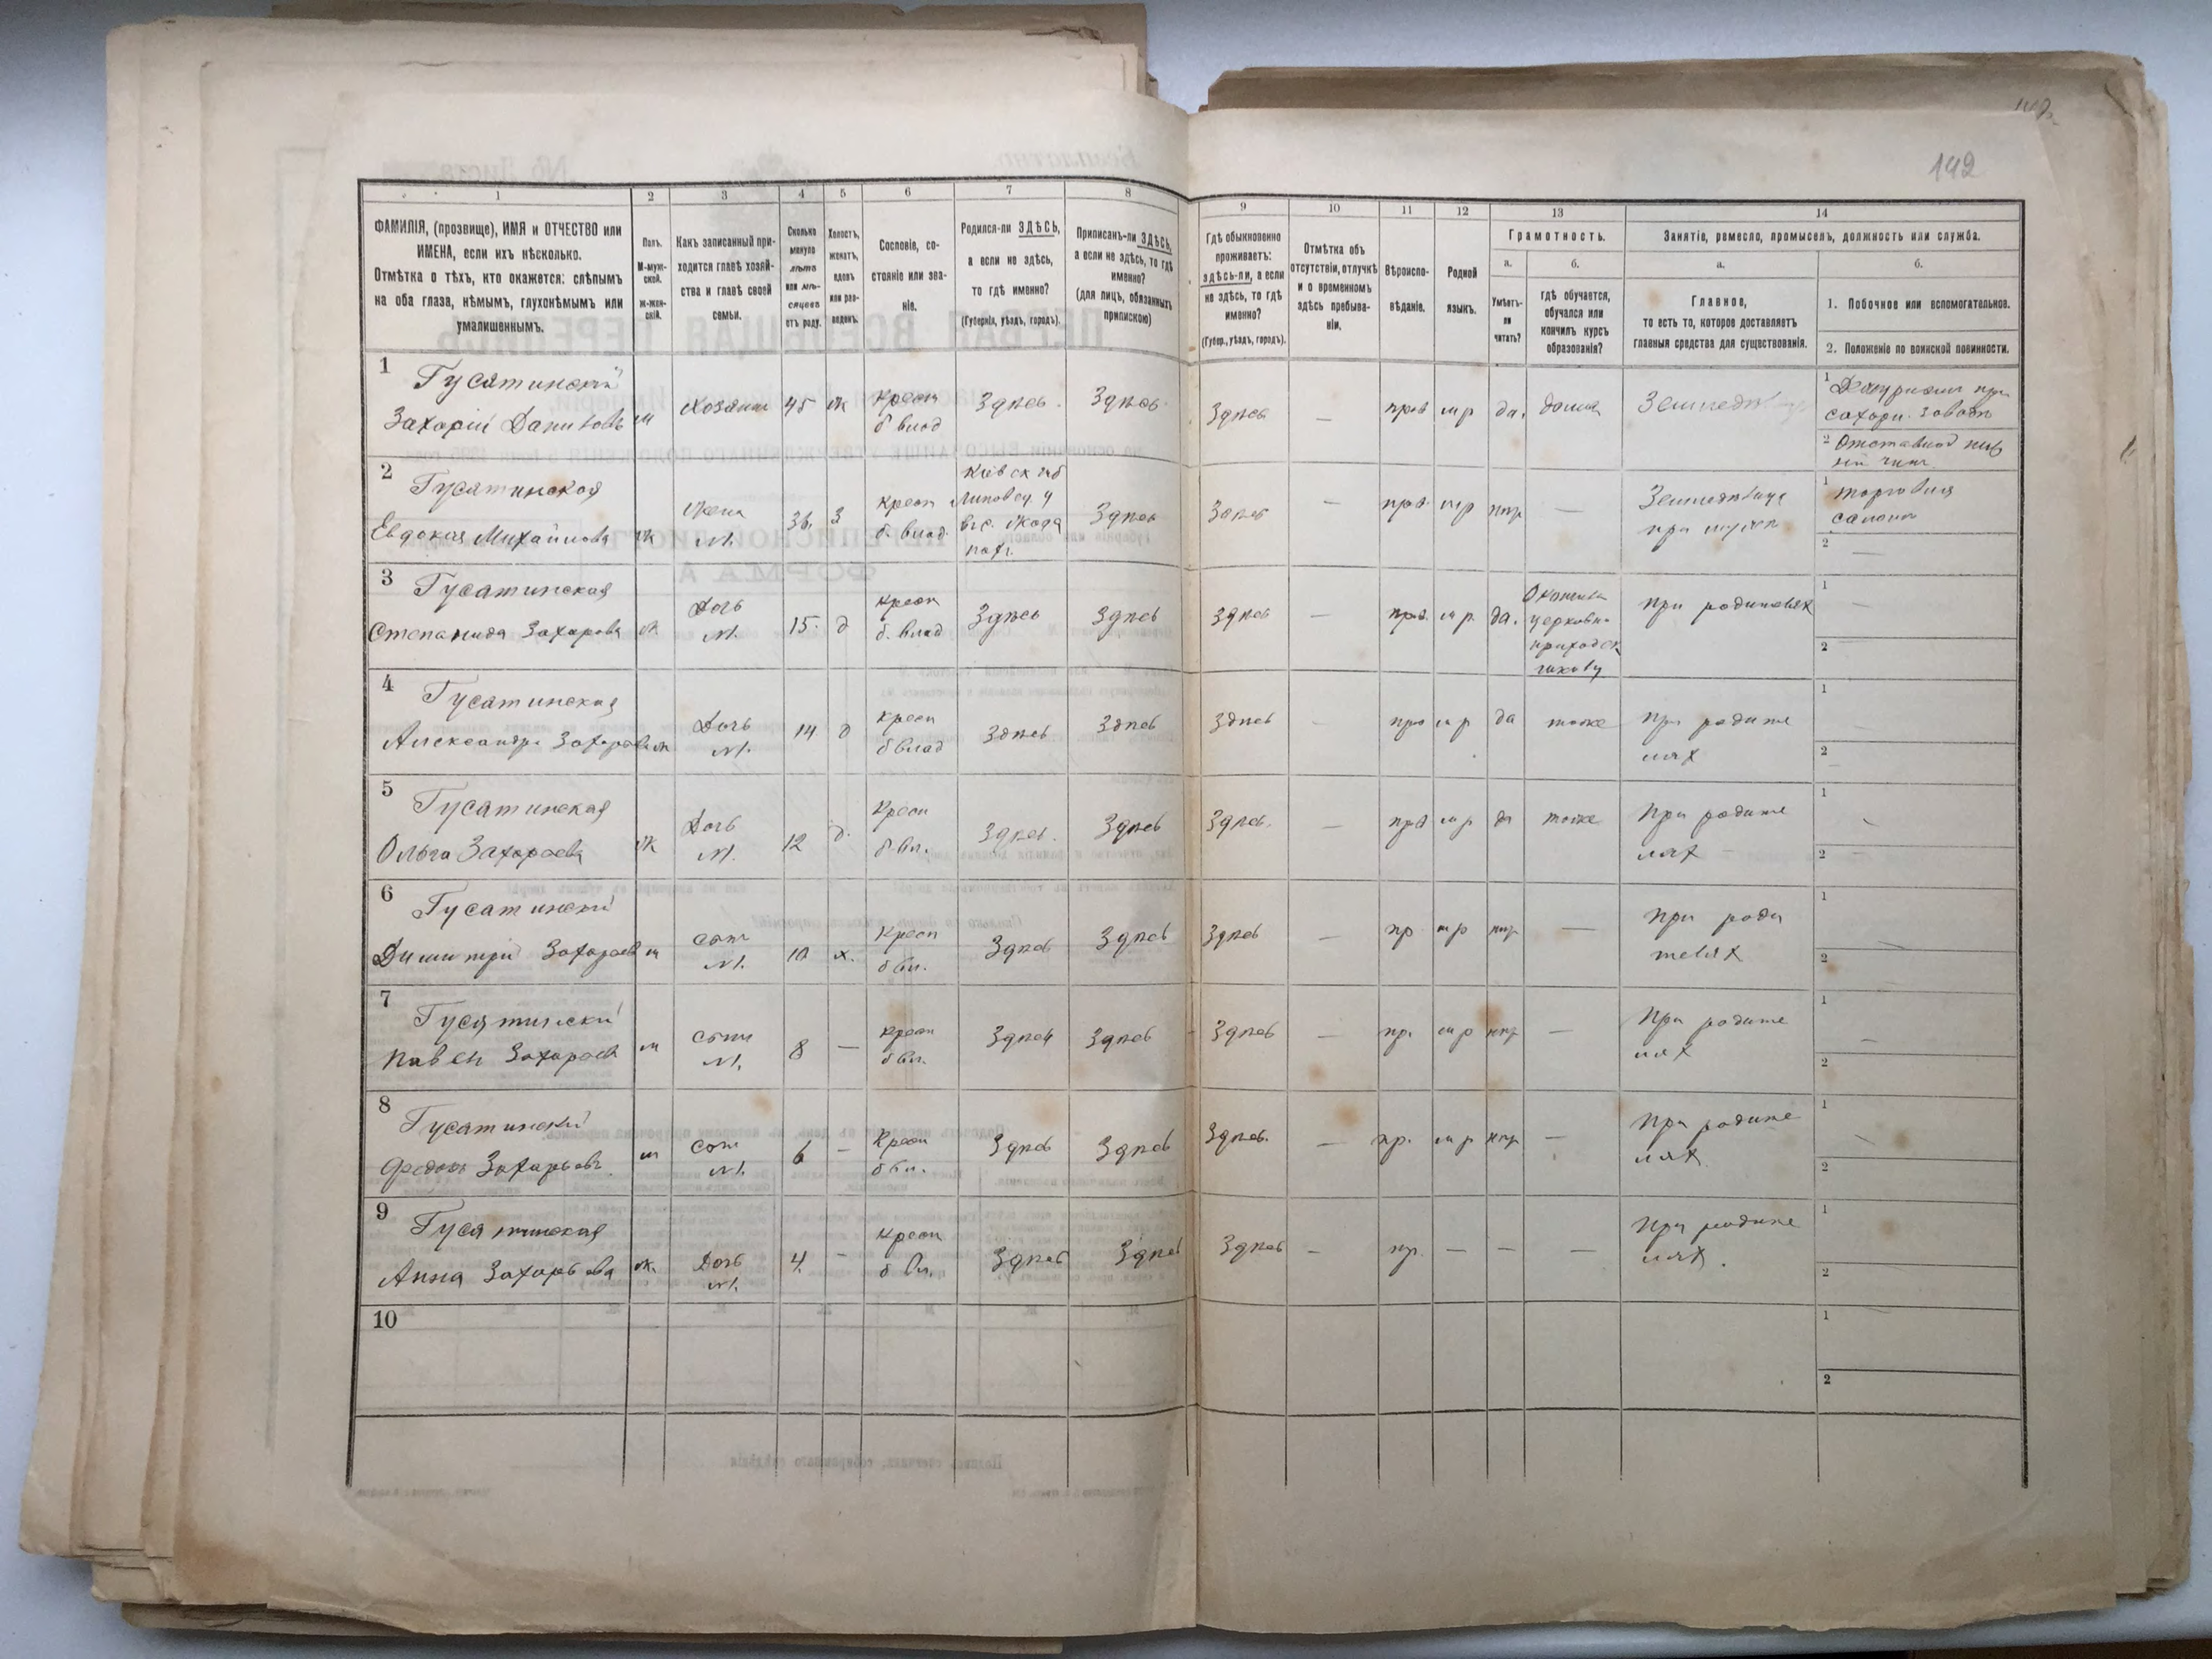 142
1
2
3
4
5
6
7
8
9
10
11
12
13
14
ФАМИЛІЯ, (прозвище), ИМЯ и ОТЧЕСТВО или
ИМЕНА, если ихъ нѣсколько.
Отмѣтка о тѣхъ, кто окажется: слѣпымъ
на оба глаза, нѣмымъ, глухонѣмымъ или
умалишеннымъ.
Полъ.
М-муж-
ской.
Ж-жен-
скій.
Какъ записанный при-
ходится главѣ хозяй-
ства и главѣ своей
семьи.
Сколько
минуло
лѣтъ
или мѣ-
сяцевъ
отъ роду.
Холостъ,
женатъ,
вдовъ
или раз-
веденъ.
Сословіе, со-
стояніе или зва-
ніе.
Родился-ли ЗДѢСЬ,
а если не здѣсь,
то гдѣ именно?
(Губернія, уѣздъ, городъ).
Приписанъ-ли ЗДѢСЬ,
а если не здѣсь, то гдѣ
именно?
(для лицъ, обязанныхъ
припискою)
Гдѣ обыкновенно
проживаетъ:
здѣсь-ли, а если
не здѣсь, то гдѣ
именно?
(Губер., уѣздъ, городъ).
Отмѣтка объ
отсутствіи, отлучкѣ
и о временномъ
здѣсь пребыва-
ніи.
Вѣроиспо-
вѣданіе.
Родной
языкъ.
Грамотность.
а.
Умѣетъ-
ли
читать?
б.
гдѣ обучается,
обучался или
кончилъ курсъ
образованія?
Занятіе, ремесло, промыселъ, должность или служба.
а.
Главное,
то есть то, которое доставляетъ
главныя средства для существованія.
б.
1. Побочное или вспомогательное.
2. Положеніе по воинской повинности.
1
Гусятинскій
Захарій Даниловъ м
Хозяинъ 45 ж
Крест
б влад
Здѣсь. Здѣсь. Здѣсь — прав мр да, дома
1 Дежурный при
сахарн. заводѣ
2 Отставной
2
Гусятинская
Евдокія Михайлова ж
Жена
М.
36. З
Крест
б. влад.
Кіевск губ
Липовец. у
Здѣсь Здѣсь — прав мр нѣтъ —
при мужѣ
1 торговля
2 —
3
Гусятинская
Степанида Захарова ж
Дочь
М.
15. д
Крест
б. влад
Здѣсь Здѣсь Здѣсь — прав. мр. да.
Окончила
церковно
приходск
школу
При родителях
1 —
2
4
Гусятинская
Александра Захарова ж
Дочь
М.
14 д
Крест
б влад
Здѣсь Здѣсь Здѣсь — пра мр да тоже
При родите
лях
1
2 —
5
Гусятинская
Ольга Захарова ж
Дочь
М.
12 д.
Крест
б. вл.
Здѣсь. Здѣсь Здѣсь. — прав мр да тоже
При родите
лях
1 —
2 —
6
Гусятинскій
Димитрій Захаров м
сын
М.
10 х.
Крест
б вл.
Здѣсь Здѣсь Здѣсь — пр мр нѣтъ —
При роди
телях
1
2
7
Гусятинскій
Павел Захаров м
сын
М.
8 —
Крест
б вл.
Здѣсь Здѣсь Здѣсь — пр. мр нѣтъ —
При родите
лях
1 —
2
8
Гусятинскій
Захарьевъ м
сын
М.
6 —
Крест
б вл.
Здѣсь Здѣсь Здѣсь. — пр. мр нѣтъ —
При родите
лях.
1
2
9
Гусятинская
Анна Захарьева ж.
Дочь
М.
4. —
Крест
б вл.
Здѣсь Здѣсь Здѣсь — пр. — — —
При родите
лях.
1
2
10
1
2